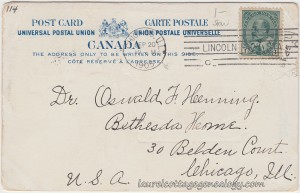 114
POST CARD
CARTE POSTALE
UNIVERSAL POSTAL UNION
UNION POSTALE UNIVERSELLE
CANADA
THE ADDRESS ONLY TO BE WRITTEN ON THIS SIDE
CÔTÉ RÉSERVÉ A L'ADRESSE
LINCOLN
Dr. Oswald F. Henning.
Bethesda Home.
30 Belden Court
Chicago, Ill.
U.S.A.
laurelcottagegenealogy.com